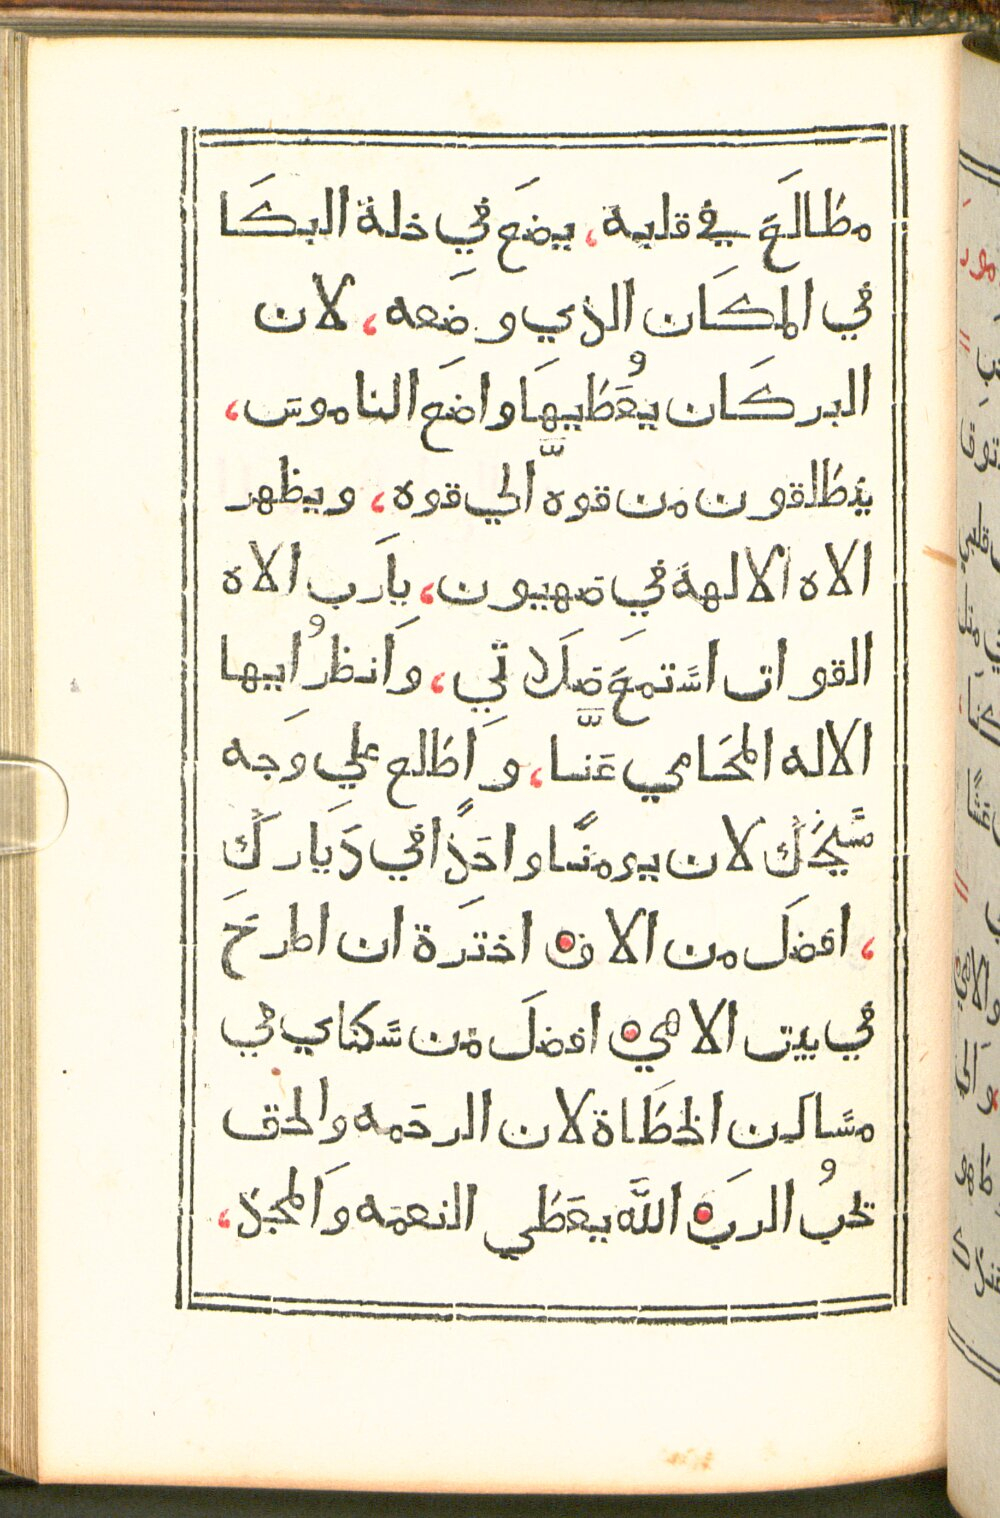 مطالَعَ في قلبة، يضَع في خلة البكَا
في المكَان الذي وضَعه، لان
البركَان يُعَطيهَا واضَع الناموسَ،
ينطلقون من قوه اَلي قوه، ويظهر
الاه الالهة في صهيون، يارَب الاه
القوات استمعَ ضَلَاتي، وَانظرُ ايها
الاله المحَامي عَنَّا، وَاطلع علي وَجه
مسَّيحَكَ لان يومنًا واحَدًا في دَيَاركَ
، افضَل من الاف اختَرَة ان اطرحَ
في بيت الاهي افضَل مَن سَكناي في
مسَاكن الخطَاة لان الرحَمه والحق
تحبُ الربَ اللَّه يعَطي النعمَه وَالمجَد،